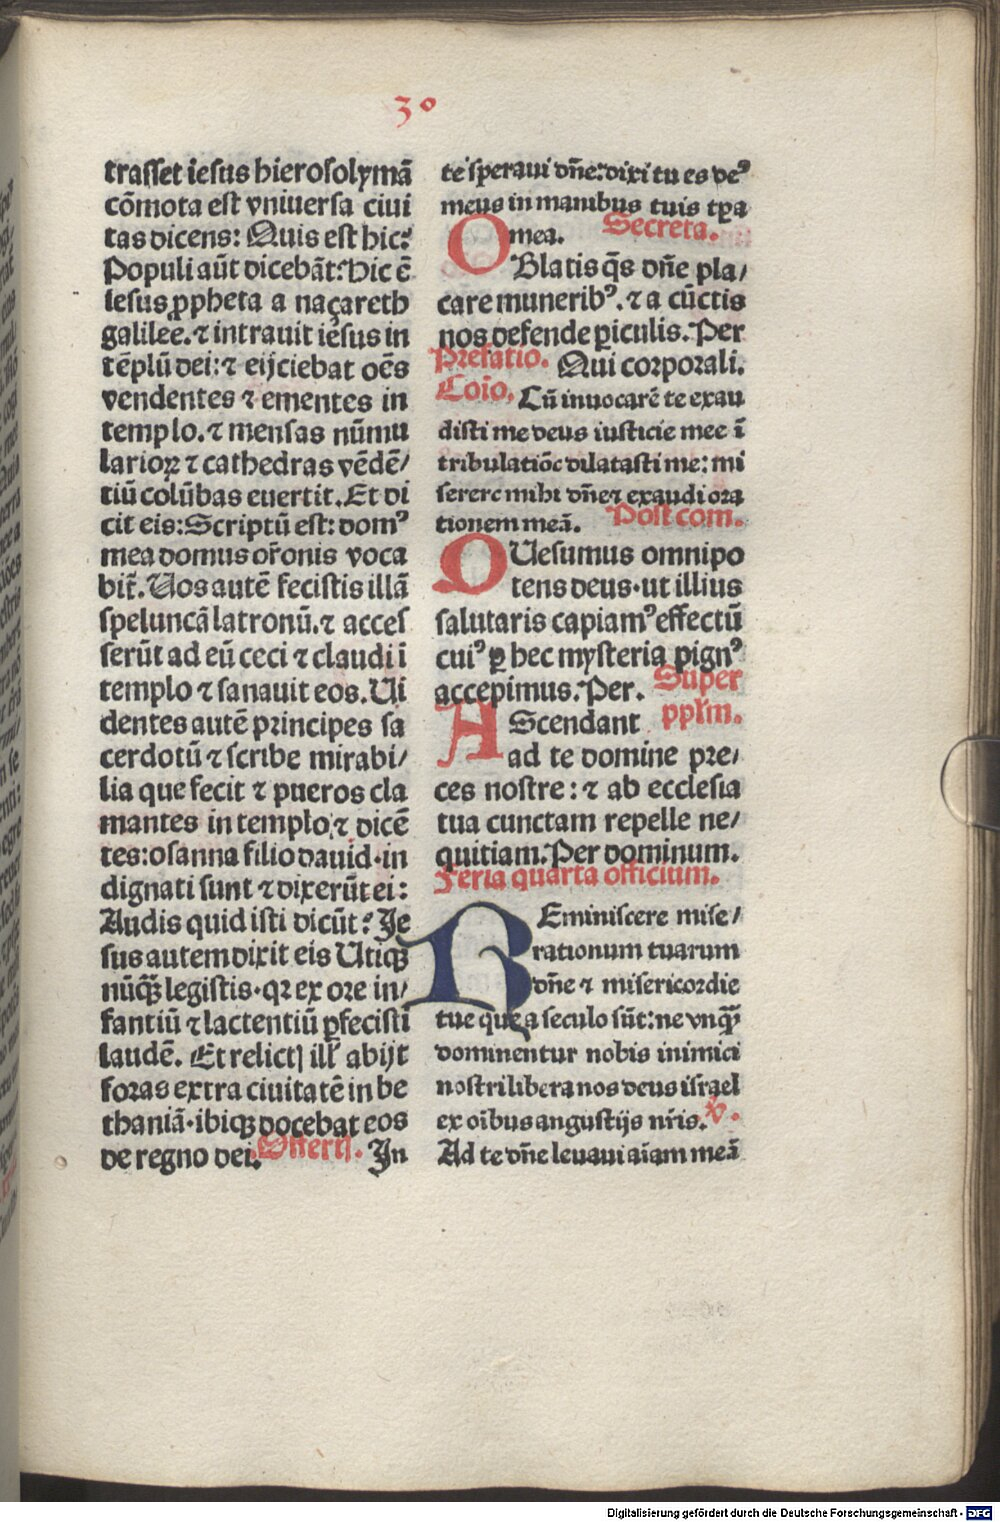 30
trasset iesus hierosolymā
cōmota est vniuersa ciui
tas dicens: Quis est hic?
Populi aūt dicebāt: hic ē
iesus ꝓpheta a naçareth
galilee. ⁊ intrauit iesus in
tēplū dei: ⁊ eijciebat oēs
vendentes ⁊ ementes in
templo. ⁊ mensas nūmu
larioꝝ ⁊ cathedras vēdē/
tiū colūbas euertit. Et di
cit eis: Scriptū est: domꝰ
mea domus or̄onis voca
bit̄. Uos autē fecistis illā
speluncā latronū. ⁊ acces
serūt ad eū ceci ⁊ claudi ī
templo ⁊ sanauit eos. Ui
dentes autē principes sa
cerdotū ⁊ scribe mirabi/
lia que fecit ⁊ pueros cla
mantes in templo ⁊ dicē
tes: osanna filio dauid. in
dignati sunt ⁊ dixerūt ei:
Audis quid isti dicūt? Je
sus autem dixit eis Utiqꝫ
nūqꝫ legistis. qꝛ ex ore in/
fantiū ⁊ lactentiū ꝑfecisti
laudē. Et relictꝭ ill' abijt
foras extra ciuitatē in be
thaniā. ibiqꝫ docebat eos
de regno dei. Offertꝭ. In
te speraui dn̄e: dixi tu es deꝰ
meus in manibus tuis tꝑa
mea. Secreta.
OBlatis qs̄ dn̄e pla/
care muneribꝰ. ⁊ a cūctis
nos defende ꝑiculis. Per
Prefatio. Qui corporali.
Coīo. Cū inuocarē te exau
disti me deus iusticie mee ī
tribulatiōe dilatasti me: mi
serere mihi dn̄e ⁊ exaudi ora
tionem meā. Post com.
QUesumus omnipo
tens deus. ut illius
salutaris capiamꝰ effectū
cuiꝰ ꝑ hec mysteria pignꝰ
accepimus. Per. Super
AScendant pplm̄.
ad te domine pre/
ces nostre: ⁊ ab ecclesia
tua cunctam repelle ne/
quitiam. Per dominum.
Feria quarta officium.
REminiscere mise/
rationum tuarum
dn̄e ⁊ misericordie
tue que a seculo sūt: ne vnqꝫ
dominentur nobis inimici
nostri libera nos deus israel
ex oībus angustijs nr̄is. ℣.
Ad te dn̄e leuaui aīam meā
Digitalisierung gefördert durch die Deutsche Forschungsgemeinschaft - DFG